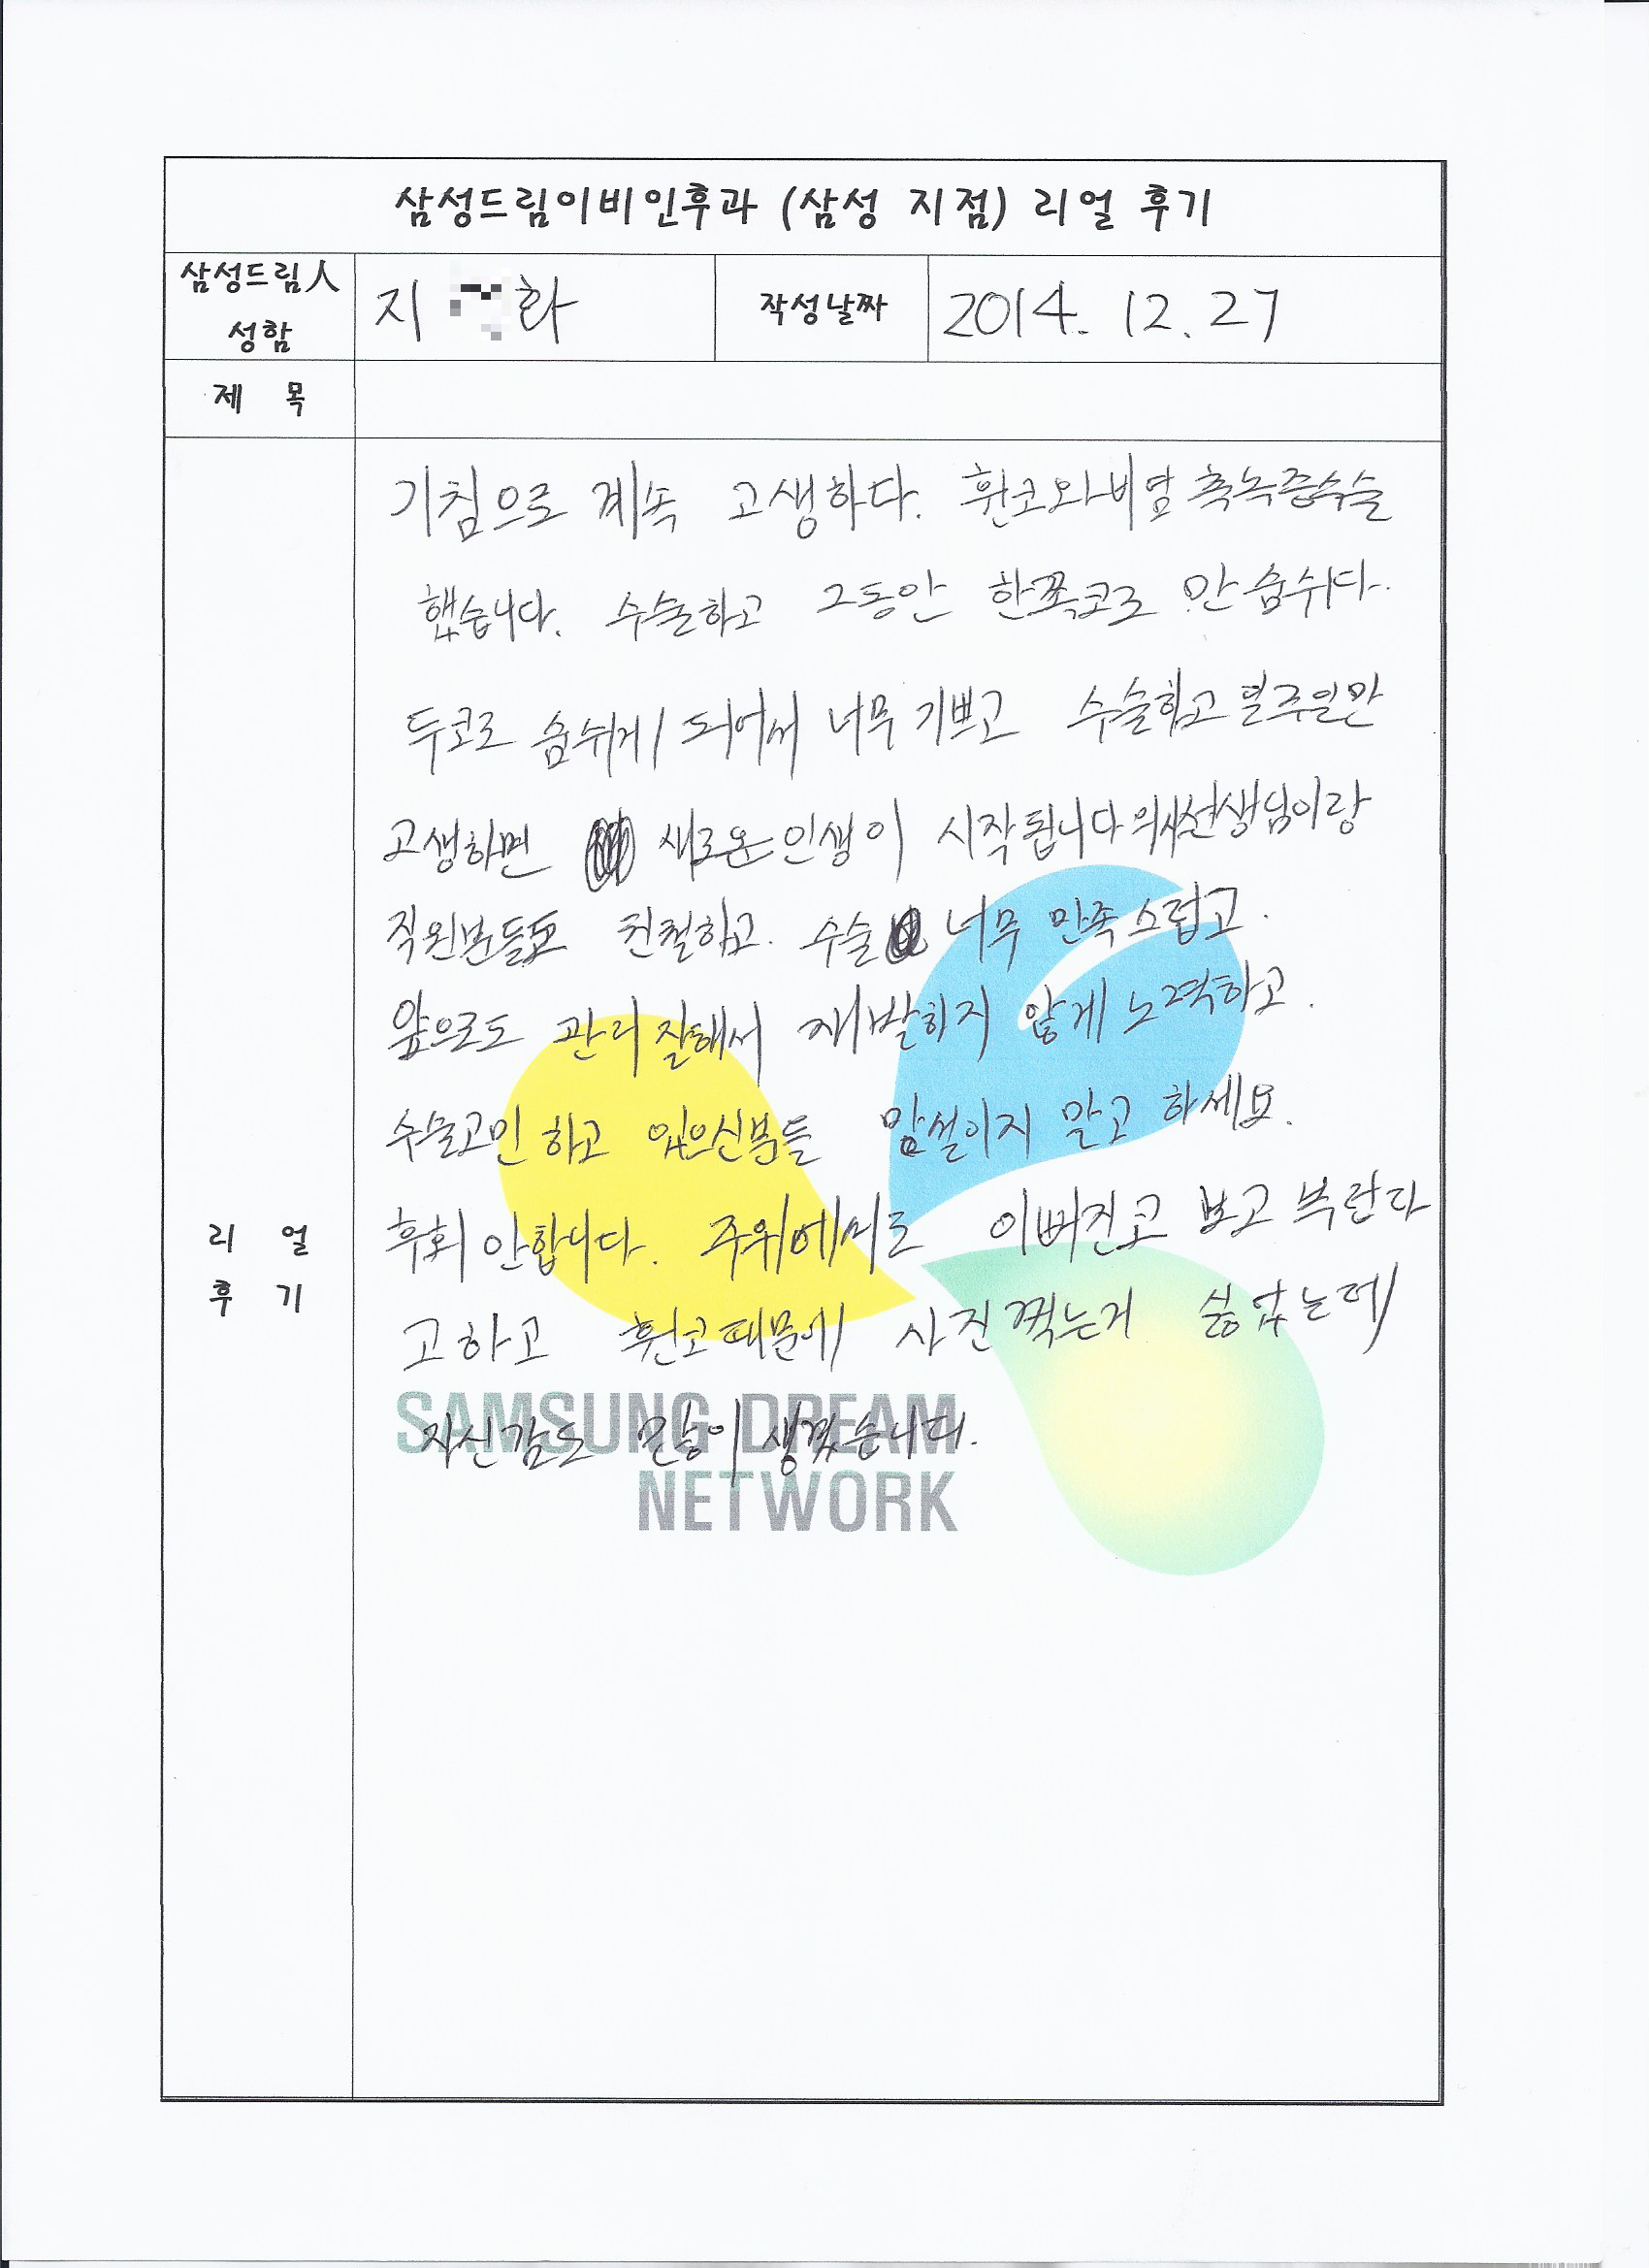 삼성드림이비인후과 (삼성 지점) 리얼 후기
삼성드림人
성함
지 화
작성날짜
2014. 12. 27
제 목
기침으로 계속 고생하다. 휜코와 비염 축농증수술
했습니다. 수술하고 그동안 한쪽코로 만 숨쉬다.
두코로 숨쉬게 되어서 너무 기쁘고 수술하고 일주일만
고생하면 새로운 인생이 시작됩니다 의사선생님이랑
직원분들도 친절하고. 수술 너무 만족스럽고.
앞으로도 관리 잘해서 재발하지 않게 노력하고.
수술고민 하고 있으신분들 망설이지 말고 하세요.
후회 안합니다. 주위에서도 이뻐진코 보고 부럽다
고하고 휜코때문에 사진찍는거 싫었는데
자신감도 많이 생겼습니다.
리 얼
후 기
SAMSUNG DREAM
NETWORK